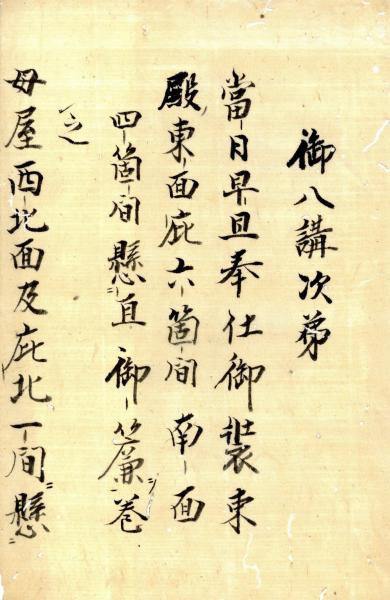 御八講次第
當日早旦奉仕御裝束
殿東面庇六箇間南面
四箇間懸亘御簾巻
之
母屋西北面及庇北一間懸